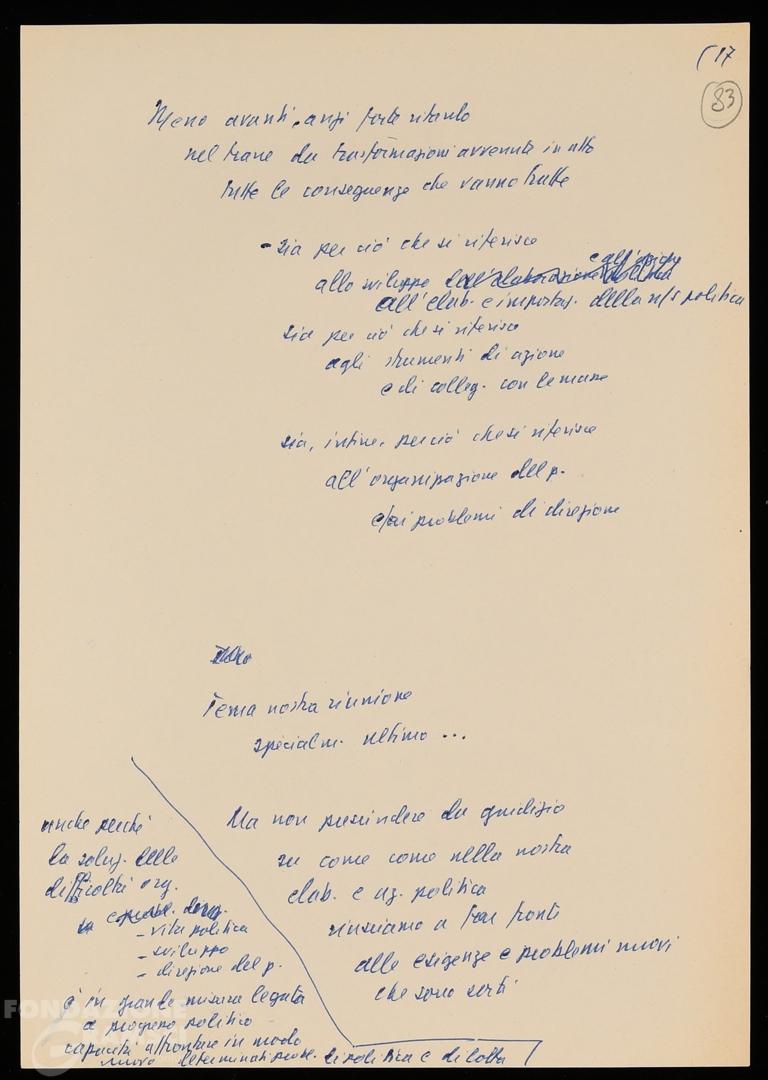 (17
83
Meno avanti, anzi forte ritardo
nel trarre da trasformazioni avvenute in atto
tutte le conseguenze che vanno tratte
- sia per ciò che si riferisce
allo sviluppo dell'elaborazione
e all'azione
all'elab. e impostaz. della n/s politica
sia per ciò che si riferisce
agli strumenti di azione
e di colleg. con le masse
sia, infine, per ciò che si riferisce
all'organizzazione del p.
e/ai problemi di direzione
Tema nostra riunione
specialm. ultimo ...
Ma non prescindere da giudizio
su come come nella nostra
elab. e az. politica
riusciamo a far fronte
alle esigenze e problemi nuovi
che sono sorti
anche perché
la soluz. delle
difficoltà org.
- vita politica
- sviluppo
- direzione del p.
è in grande misura legata
a progresso politico
capacità affrontare in modo
nuovo determinati probl. di politica e di lotta
FONDAZIONE